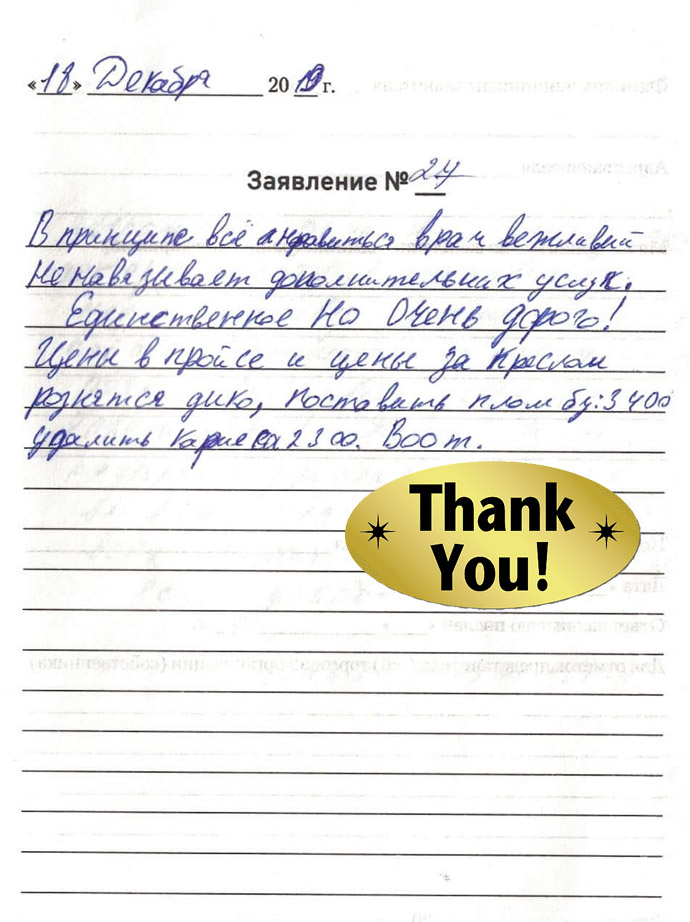 «18» Декабря 2019 г.
Заявление № 24
В принципе всё нравиться врач вежливый
не навязивает дополнительних услук.
Единственное Но Очень дорого!
Цены в пройсе и цены за креслом
рознятся дико, поставить пломбу: 3400
удалить кариеса 2300. Воот.
Thank
You!